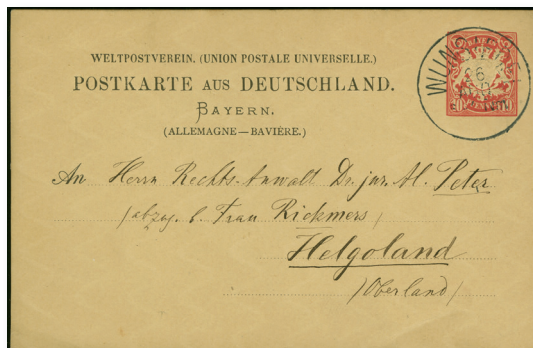 WELTPOSTVEREIN. (UNION POSTALE UNIVERSELLE.)
POSTKARTE AUS DEUTSCHLAND.
BAYERN.
(ALLEMAGNE—BAVIÈRE.)
An Herrn Rechts-Anwalt Dr. jur. M. Peter
(abzug. b. Frau Rickmers)
Helgoland
(Oberland)